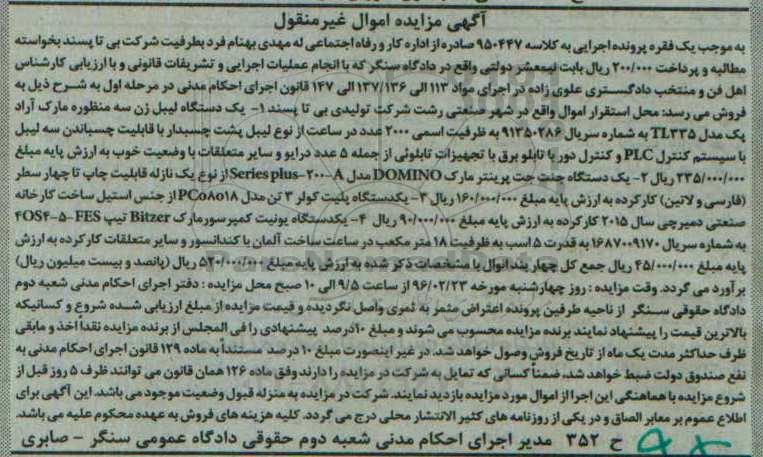 آگهی مزایده اموال غیرمنقول
به موجب یک فقره پرونده اجرایی به کلاسه ۹۵۰۴۴۷ صادره از اداره کار و رفاه اجتماعی له مهدی بهنام فرد بطرفیت شرکت بی تا پسند بخواسته
مطالبه و پرداخت ۲۰۰/۰۰۰ ریال بابت نیمعشر دولتی واقع در دادگاه سنگر که با انجام عملیات اجرایی و تشریفات قانونی و با ارزیابی کارشناس
اهل فن و منتخب دادگستری علوی زاده در اجرای مواد ۱۱۳ الی ۱۳۷/۱۳۶ الی ۱۴۷ قانون اجرای احکام مدنی در مرحله اول به شرح ذیل به
فروش می رسد: محل استقرار اموال واقع در شهر صنعتی رشت شرکت تولیدی بی تا پسند ۱- یک دستگاه لیبل زن سه منظوره مارک آراد
پک مدل TL۳۳۵ به شماره سریال ۹۱۳۵۰۲۸۶ به ظرفیت اسمی ۲۰۰۰ عدد در ساعت از نوع لیبل پشت چسبدار با قابلیت چسباندن سه لیبل
با سیستم کنترل PLC و کنترل دور با تابلو برق با تجهیزات تابلوئی از جمله ۵ عدد درایو و سایر متعلقات با وضعیت خوب به ارزش پایه مبلغ
۲۳۵/۰۰۰/۰۰۰ ریال ۲- یک دستگاه جنت جت پرینتر مارک DOMINO مدل Series plus-۲۰۰-A از نوع یک نازله قابلیت چاپ تا چهار سطر
(فارسی و لاتین) کارکرده به ارزش پایه مبلغ ۱۶۰/۰۰۰/۰۰۰ ریال ۳- یکدستگاه پلیت کولر ۳ تن مدل PC۰۸۰۱۸ از جنس استیل ساخت کارخانه
صنعتی دمیرچی سال ۲۰۱۵ کارکرده به ارزش پایه مبلغ ۹۰/۰۰۰/۰۰۰ ریال ۴- یکدستگاه یونیت کمپرسور مارک Bitzer تیپ ۴OS۴-۵-FES
به شماره سریال ۱۶۸۷۰۰۹۱۷۰ به قدرت ۵ اسب به ظرفیت ۱۸ متر مکعب در ساعت ساخت آلمان با کندانسور و سایر متعلقات کارکرده به ارزش
پایه مبلغ ۴۵/۰۰۰/۰۰۰ ریال جمع کل چهار بند اموال با مشخصات ذکر شده به ارزش پایه مبلغ ۵۲۰/۰۰۰/۰۰۰ ریال (پانصد و بیست میلیون ریال)
برآورد می گردد. وقت مزایده : روز چهارشنبه مورخه ۹۶/۰۲/۲۳ از ساعت ۹/۵ الی ۱۰ صبح محل مزایده : دفتر اجرای احکام مدنی شعبه دوم
دادگاه حقوقی سنگر از ناحیه طرفین پرونده اعتراض مثمر به ثمری واصل نگردیده و قیمت مزایده از مبلغ ارزیابی شده شروع و کسانیکه
بالاترین قیمت را پیشنهاد نمایند برنده مزایده محسوب می شوند و مبلغ ۱۰درصد پیشنهادی را فی المجلس از برنده مزایده نقداً اخذ و مابقی
ظرف حداکثر مدت یک ماه از تاریخ فروش وصول خواهد شد. در غیر اینصورت مبلغ ۱۰ درصد مستنداً به ماده ۱۲۹ قانون اجرای احکام مدنی به
نفع صندوق دولت ضبط خواهد شد، ضمناً کسانی که تمایل به شرکت در مزایده را دارند وفق ماده ۱۲۶ همان قانون می توانند ظرف ۵ روز قبل از
شروع مزایده با هماهنگی این اجرا از اموال مورد مزایده بازدید نمایند. شرکت در مزایده به منزله قبول وضعیت موجود می باشد. این آگهی برای
اطلاع عموم بر معابر الصاق و در یکی از روزنامه های کثیر الانتشار محلی درج می گردد. کلیه هزینه های فروش به عهده محکوم علیه می باشد.
ح ۳۵۲ مدیر اجرای احکام مدنی شعبه دوم حقوقی دادگاه عمومی سنگر - صابری